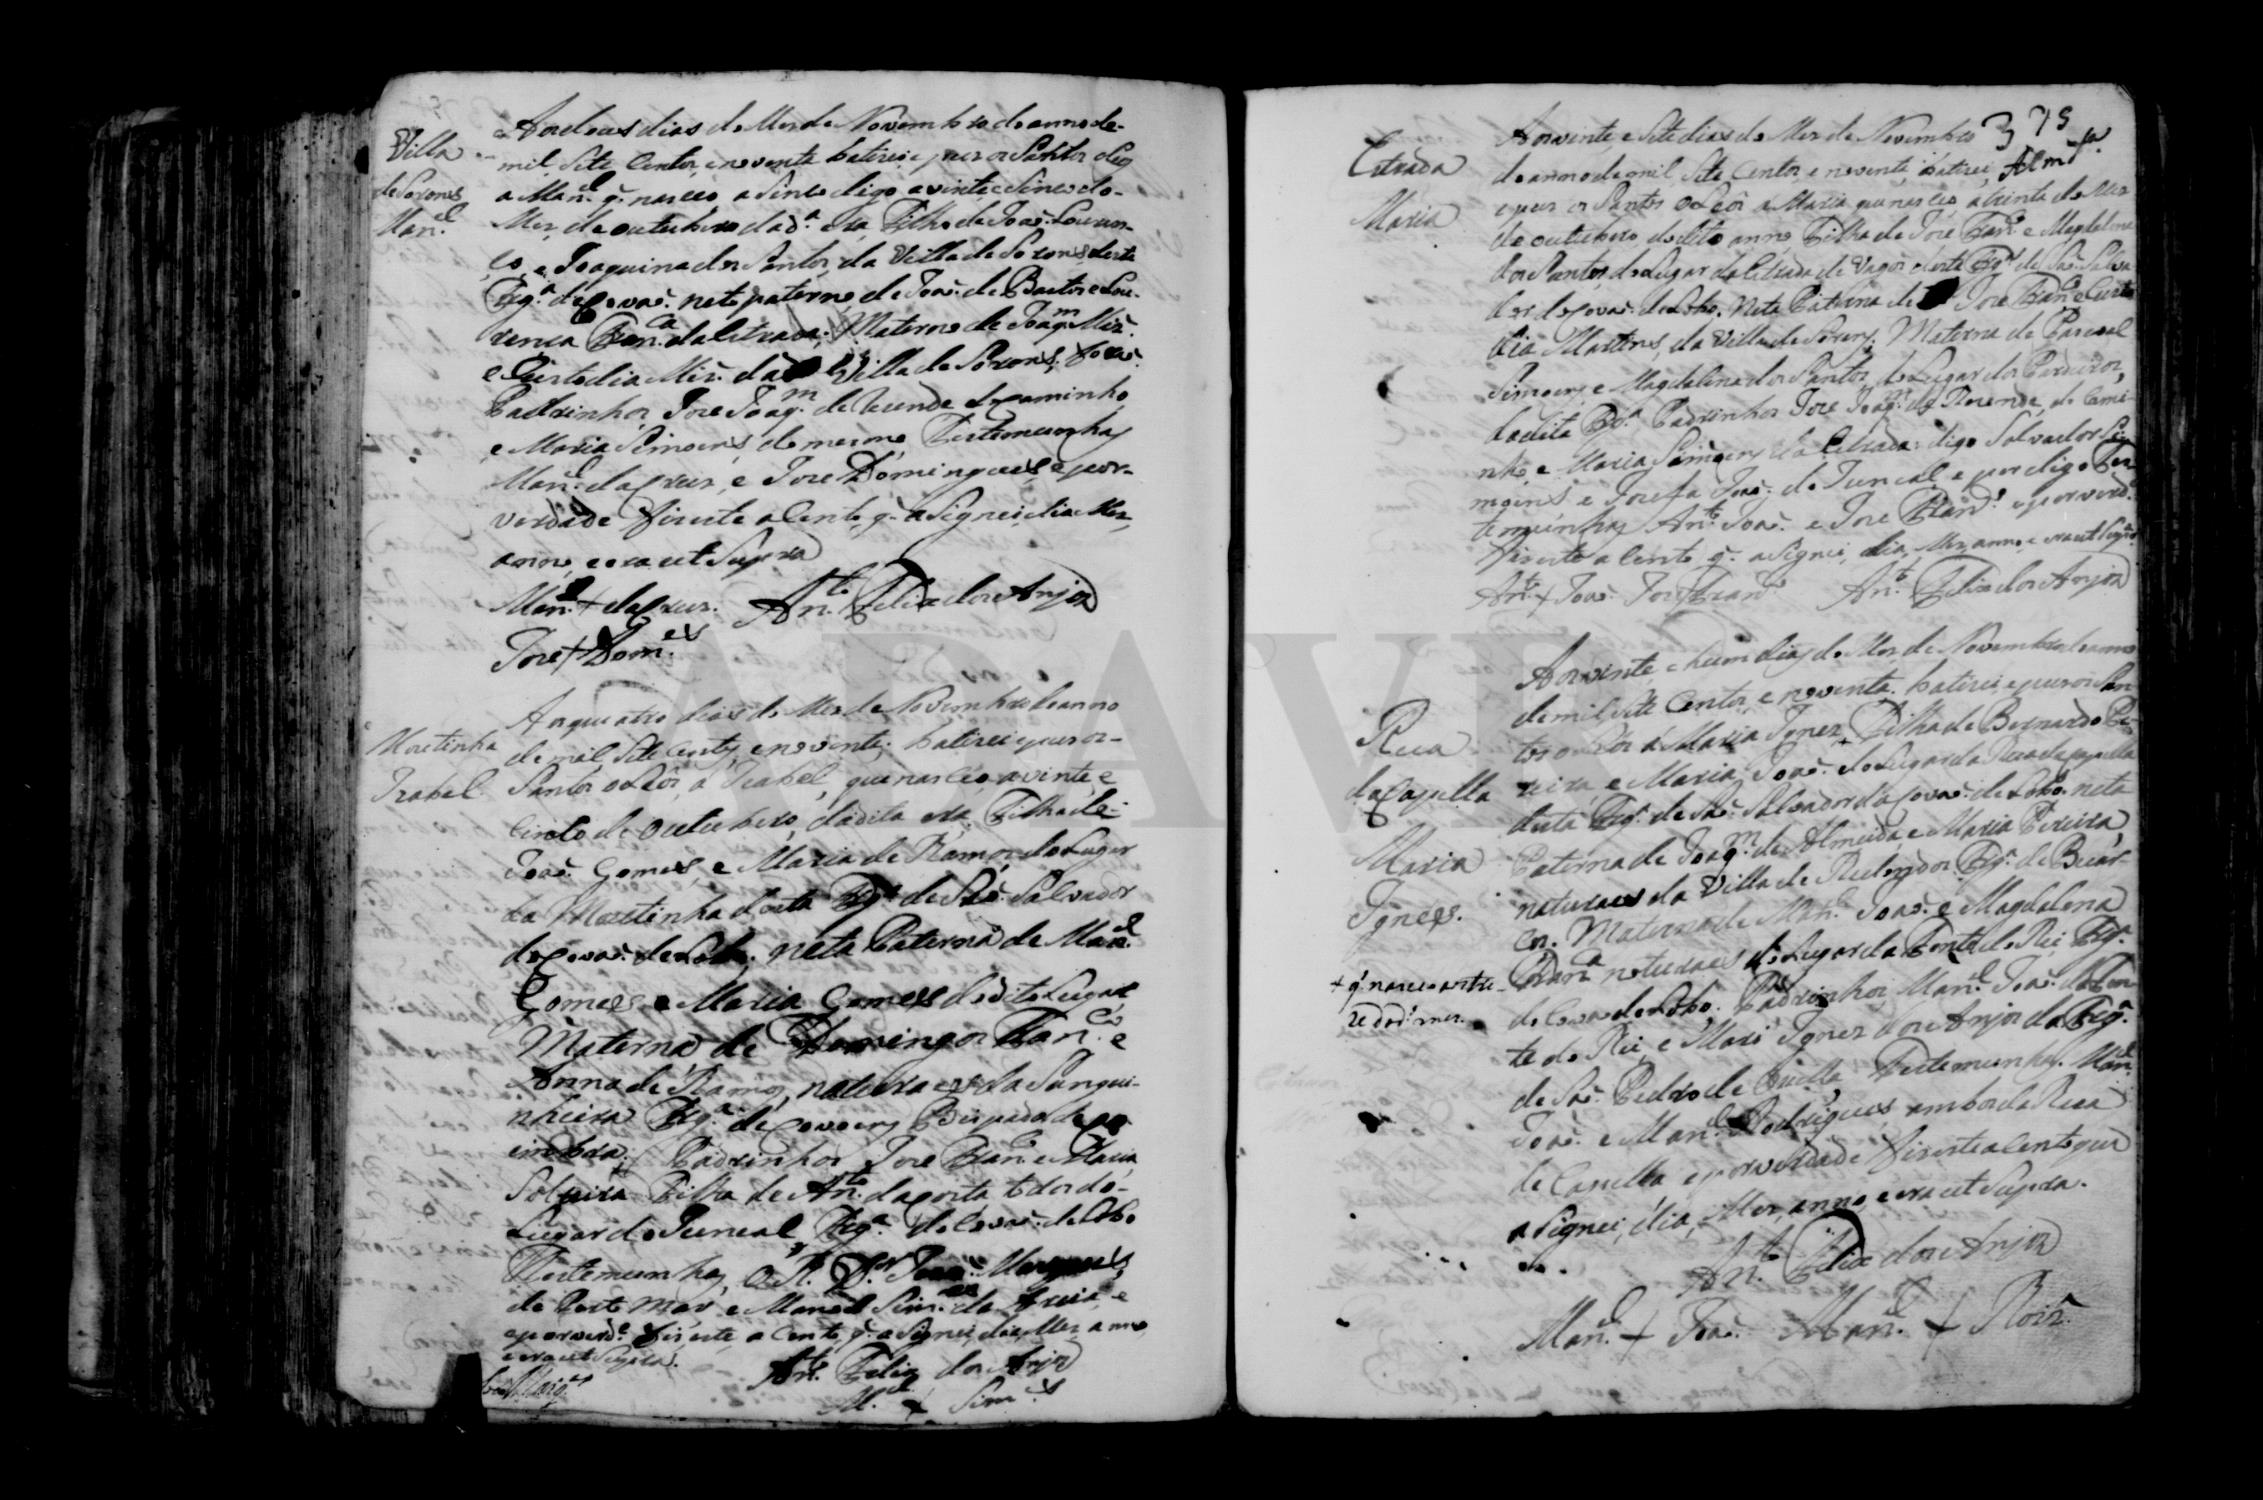 Villa
de Sorens
Man.el
Aos dous dias do Mes de Novembro do anno de-
mil Sete Centos, e noventa batizei e pus os Santos oleos
a Man.el q. nasceo, a Sinco digo a vinte e Sinco do-
Mes, de outubro da d.a era, Filho de Joaõ Louren-
ço, e Joaquina dos Santos, da Villa de Sorens desta
Frg.a de Covaõ. neto paterno de Joaõ. de Bastos e Lou-
renca Fran.ca da Estrada; Materno de Joaq.m Miz.
e Custodia Miz. da Villa de Sorens, foraõ
Padrinhos, Joze Joaq.m de Rezende do Caminho,
e Maria Simoens, do mesmo Testemunhas
Man.el da Cruz, e Joze Domingues, e por-
verdade fis este aCento q. aSignei, dia Mes,
anno, e era ut Supra
Man.el + da Cruz. An.to Felix dos Anjos
Joze + Dom.es
Moitinha
Izabel.
Aos quatro dias do Mes de Novembro do anno
de mil, Sete Centos, e noventa; batizei e pus os-
Santos oLeos, a Izabel, que nasceo, a vinte, e
Cinco de outubro, da dita era. Filha de-
Joaõ. Gomes, e Maria de Ramos, do Lugar
da Moitinha desta Frg.a de Saõ. Salvador
de Covaõ. do Lobo, neta Paterna de Man.el
Gomes, e Maria Gomes do dito Lugar
Materna de Domingos Fran.co e
Anna de Ramos, naturaes da Sangui-
nheira Frg.a de Covoens Bispado de Co
imbra; Padrinhos Joze Fran.co e Maria
Solteira Filha de An.to da Costa todos do-
Lugar do Juncal, Frg.a do Covaõ. do Lobo
Testemunhas, O R. D.or Joaõ. Marques,
de Porto Mar, e Manoel Sim.es da Areia, e
e por verd.e fis este, aCento q. aSignei, dia Mes anno
e era ut Supra.
An.to Felix dos Anjos
M.el + Sim.es
375
Estrada
Maria
Aos vinte, e Sete dias do Mes de Novembro
do anno de mil, Sete Centos, e noventa, batizei,
e pus os Santos oLeos a Maria que nasceo a trinta do Mes
de outubro do dito anno Filha de Joze Fran.co e Magdalena
dos Santos, do Lugar da Estrada de Vagos desta Frg.a de Saõ. Salva
dor de Covaõ. do Lobo, Neta Paterna de Joze Fran.co e Custo
dia Martins, da Villa de Sorens; Materna de Pascoal
Simoens, e Magdalena dos Santos, do Lugar dos Cardeiros,
da dita Frg.a Padrinhos Joze Joaq.m de Rezende, do Cami-
nho, e Maria Simoens da Estrada: digo Salvador Si-
moens e Josefa Joaõ. do Juncal, e por digo Tes
temunhas An.to Joaõ. e Joze Fran.co e por verd.e
fis este aCento q. aSignei, dia, Mes, anno, e era ut Supra.
An.to + Joaõ. Joze Fran.co An.to Felix dos Anjos
Rua
da Capella
Maria
Ignes.
+ q. nasceo a treze
do d.o mes.
Aos vinte e hum dias do Mes de Novembro do anno
de mil, Sete Centos, e noventa, batizei, e pus os San
tos oLeos á Maria Ignez, + Filha de Bernardo Pe-
reira, e Maria Joaõ. do Lugar da Rua da Capella
desta Frg.a de Saõ. Salvador da Covaõ. do Lobo. neta
Paterna de Joaq.m de Almeida, e Maria Pereira,
naturaes da Villa de Redondos Frg.a de Buar-
cos. Materna de Man.el Joaõ. e Magdalena
naturaes do Lugar da Fonte do Rei Frg.a
do Covaõ do Lobo. Padrinhos, Man.el Joaõ. da Fon
te do Rei, e Maria Ignez dos Anjos da Frg.a
de Saõ. Pedro de Testemunhas. Man.el
Joaõ. e Man.el Rodrigues, ambos da Rua
da Capella e por verdade fis este aCento que
aSignei, dia, Mes, anno, e era ut Supra.
An.to Felix dos Anjos
Man.el + Joaõ. Man.el + Roiz.
ADAVR